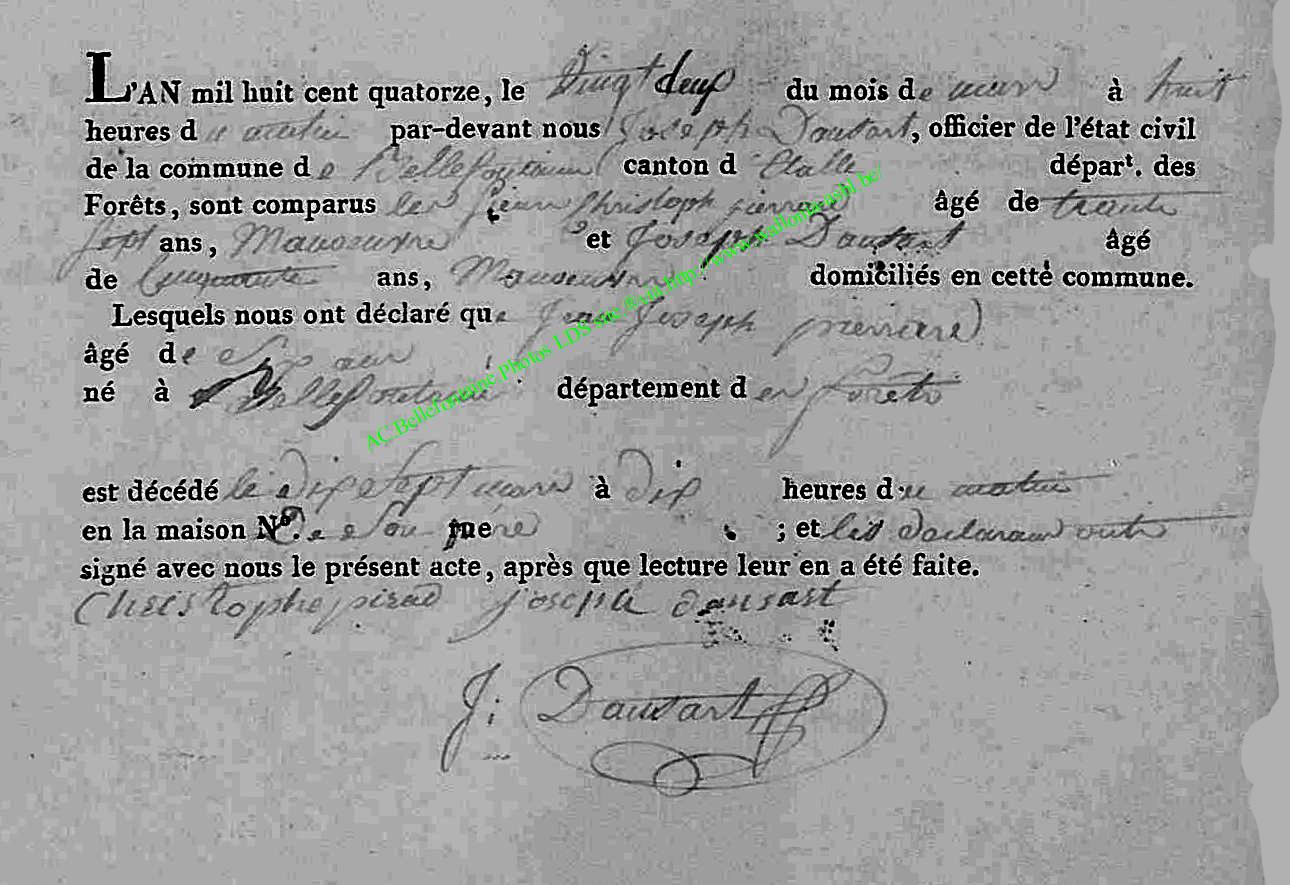 L'AN mil huit cent quatorze, le Vingt deux du mois de mars à huit
heures du matin par-devant nous Joseph Dausart, officier de l'état civil
de la commune de Bellefontaine canton d'Etalle départ. des
Forêts, sont comparus jean Christoph pierrard âgé de trente
sept ans, Manoeuvre et Joseph Dausart âgé
de Cinquante ans, Manoeuvre domiciliés en cette commune.
Lesquels nous ont déclaré que Jean Joseph pierrard
âgé de
né à Bellefontaine département des forêts
est décédé le dix sept mars à dix heures du matin
en la maison N.º de Son père ; et les declarans ont
signé avec nous le présent acte, après que lecture leur en a été faite.
Christophe pierard joseph dausart
J: Dausart
AC.Bellefontaine.Photos LDS site:&via http://www.wallonia-asbl.be/